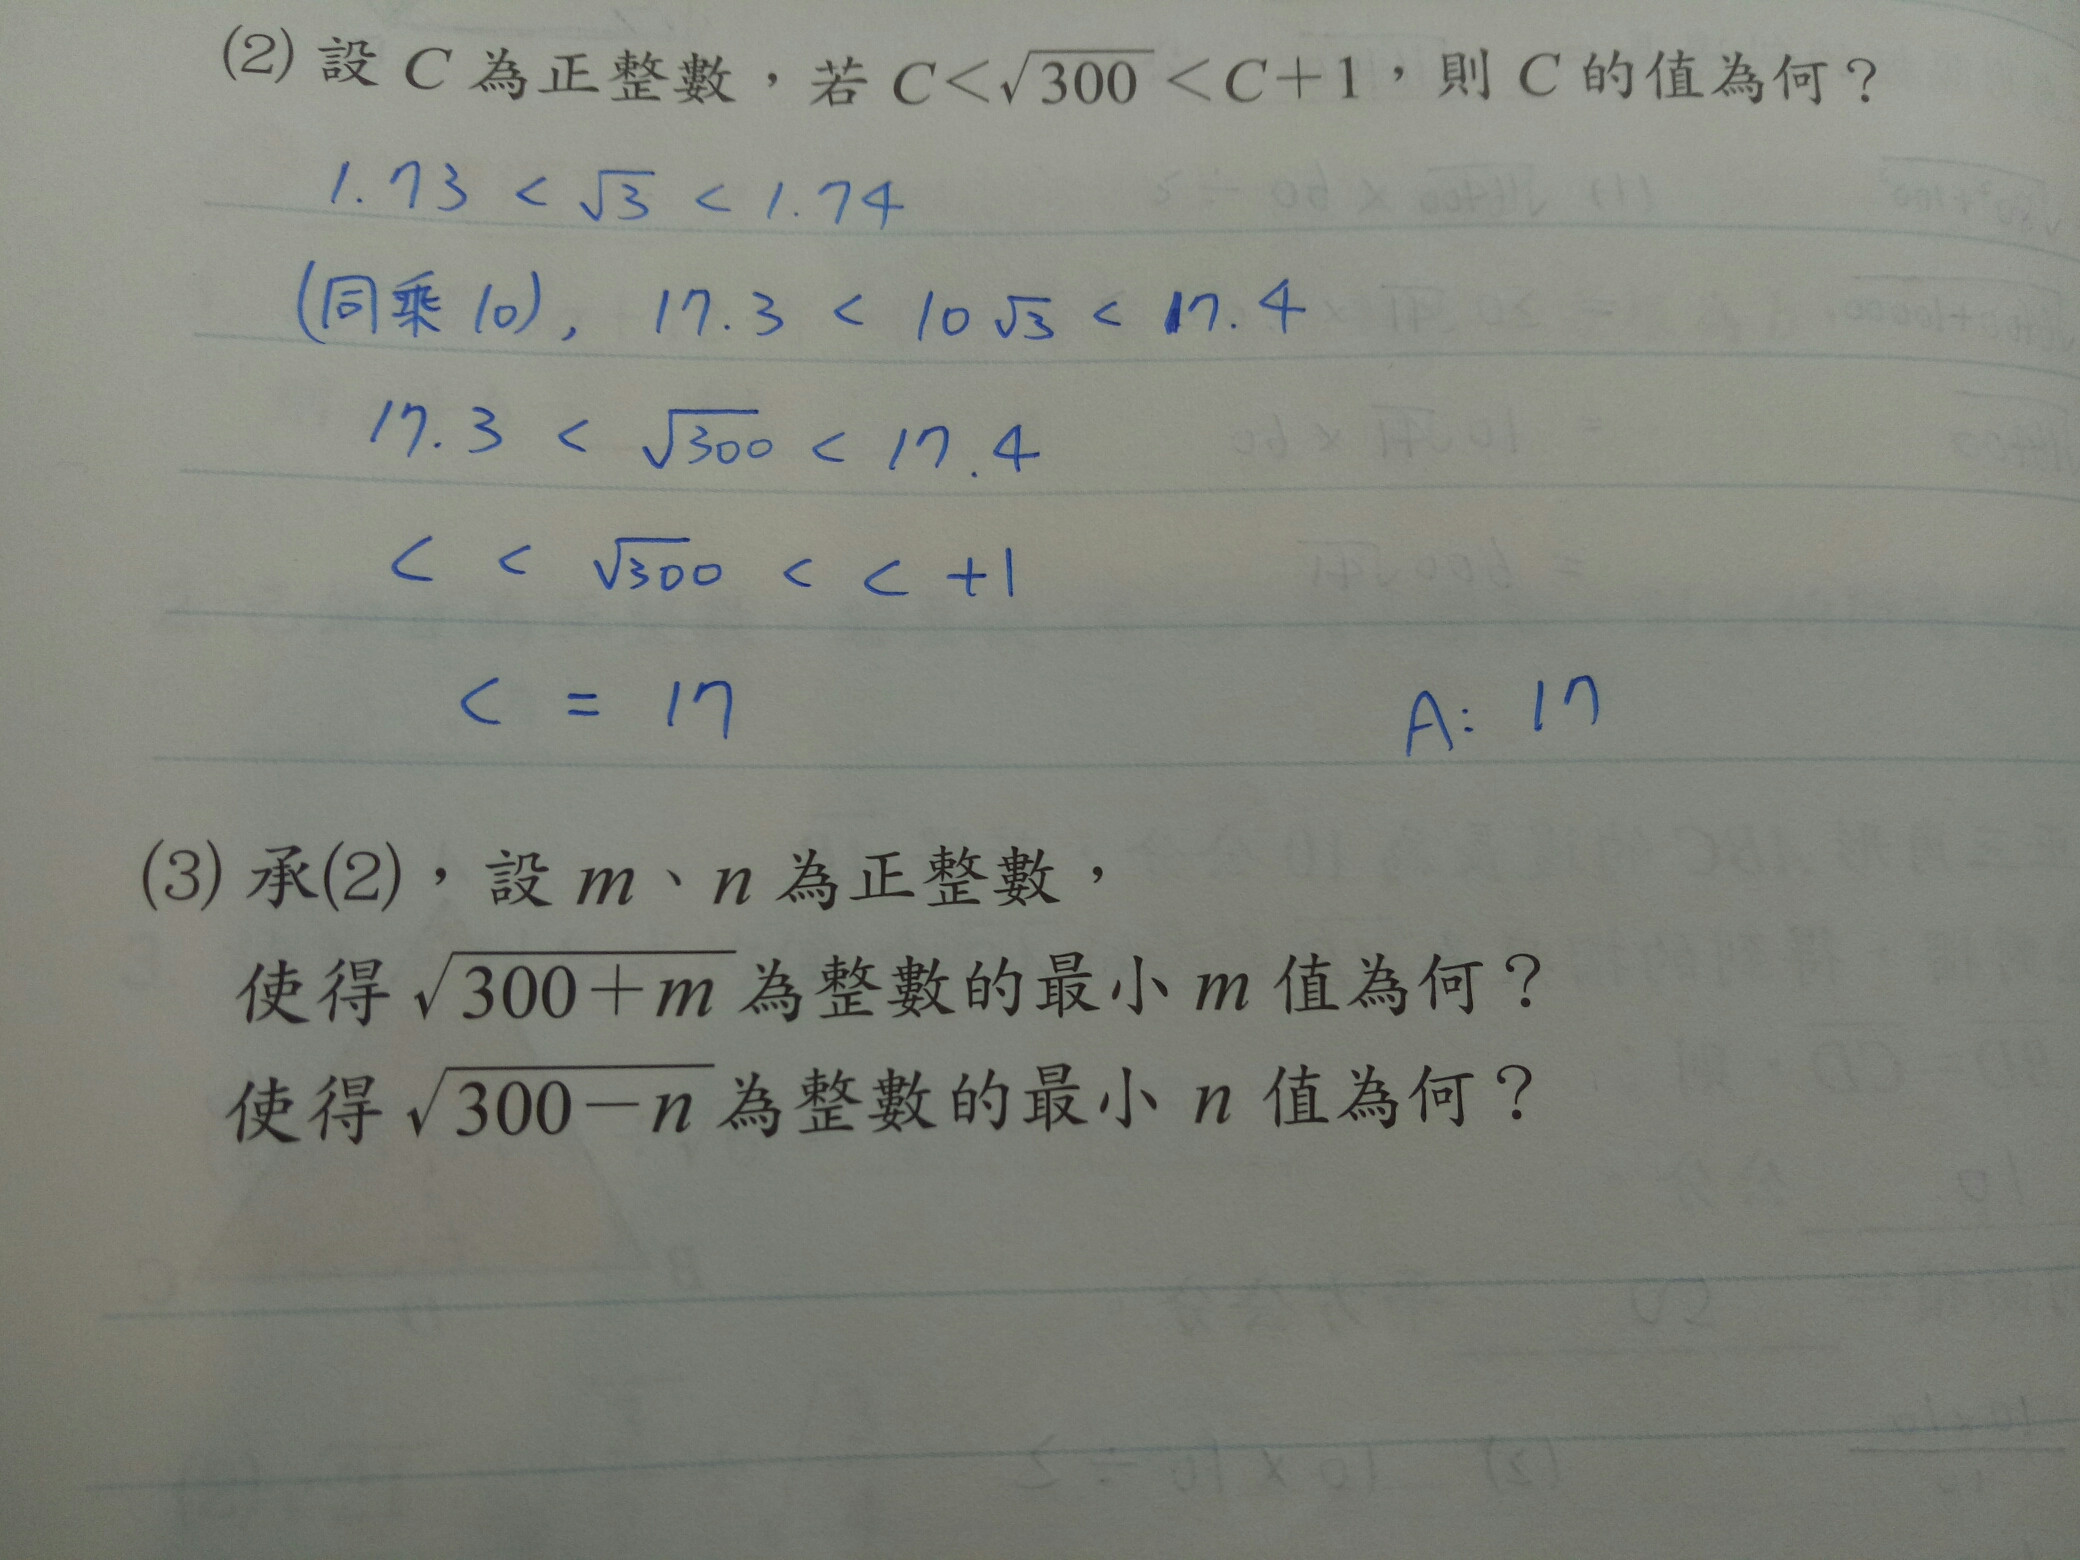 (2) 設 C 為正整數，若 C<√300<C+1，則 C 的值為何？
1.73 < √3 < 1.74
(同乘10), 17.3 < 10√3 < 17.4
17.3 < √300 < 17.4
C < √300 < C +1
C = 17 A: 17
(3) 承(2)，設 m、n 為正整數，
使得 √300+m 為整數的最小 m 值為何？
使得 √300−n 為整數的最小 n 值為何？